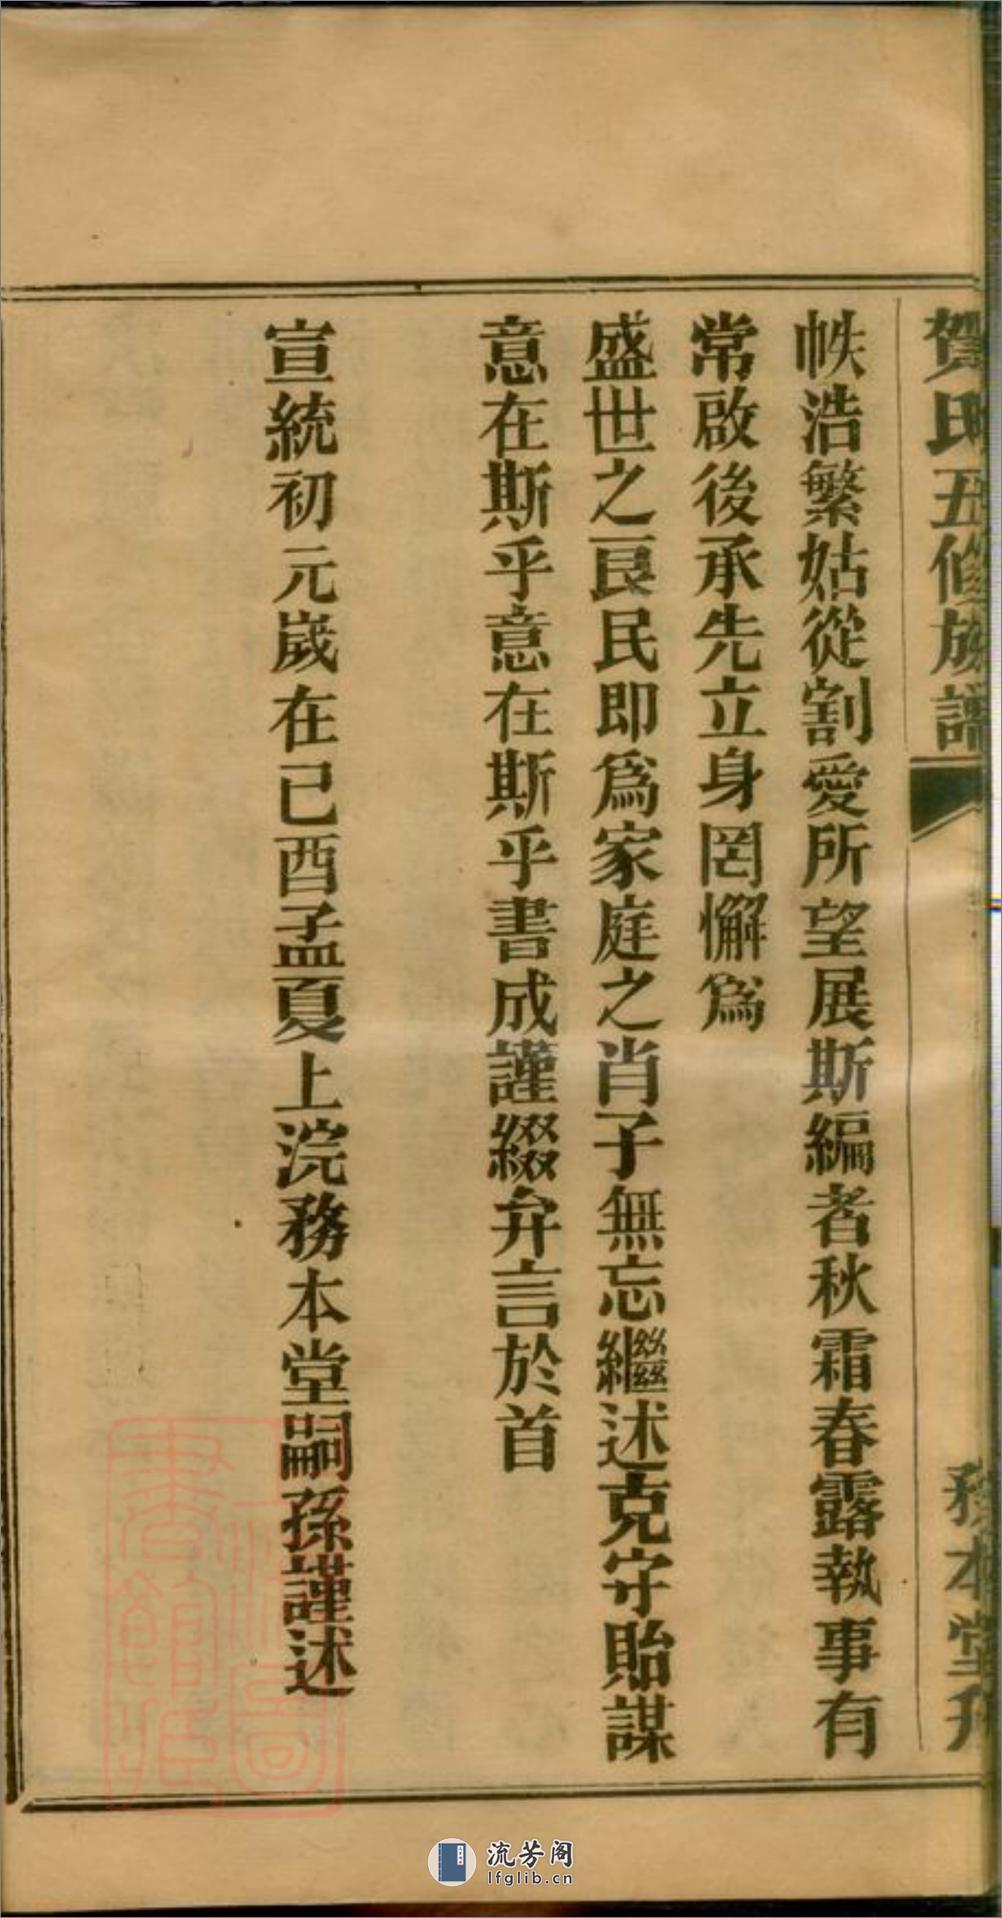 賀氏五修族譜
務本堂刊
帙浩繁姑從割愛所望展斯編者秋霜春露執事有
常啟後承先立身罔懈爲
盛世之良民即爲家庭之肖子無忘繼述克守貽謀
意在斯乎意在斯乎書成謹綴弁言於首
宣統初元嵗在已酉孟夏上浣務本堂嗣孫謹述
流芳阁
lfglib.cn